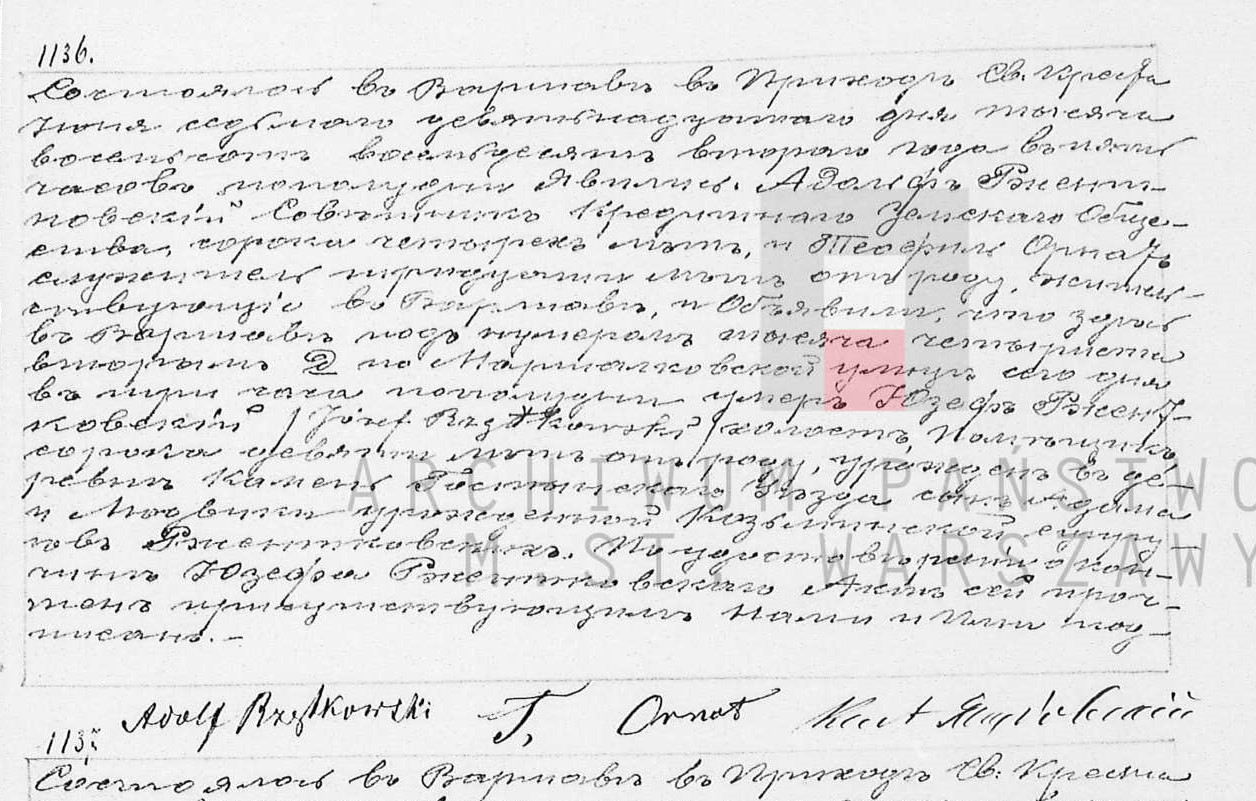 1136.
Состоялось въ Варшавѣ въ Приходѣ Св. Креста
Іюня седьмаго девятьнадцатаго дня тысяча
восемьсотъ восемьдесятъ втораго года въ пять
часовъ пополудни явились. Адольфъ Ржент-
ковскій Совѣтникъ Кредитнаго Земскаго Обще-
ства, сорока четырехъ лѣтъ, и Теофиль Орнатъ
служитель тридцати лѣтъ отъ роду, житель-
ствующіе въ Варшавѣ, и Объявили, что здѣсь
въ Варшавѣ подъ нумеромъ тысяча четыриста
вторымъ D по Маршалковской улицѣ сего дня
въ три часа пополудни умеръ Юзефъ Ржент-
ковскій /Józef Rzętkowski/ холостъ, Помѣщикъ
сорока девяти лѣтъ отъ роду, урожденъ въ де-
ревнѣ Камень Гостынскаго Уѣзда сынъ Адама
и Людвики урожденной Козьминской супру-
говъ Ржентковскихъ. По удостовѣреніи о кон-
чинѣ Юзефа Ржентковскаго Актъ сей проч-
тенъ присутствующимъ Нами и Ими под-
писанъ. -
Adolf Rzętkowski T, Ornat
113
Состоялось въ Варшавѣ въ Приходѣ Св. Креста
ARCHIWUM PAŃSTWO
M. ST. WARSZAWY